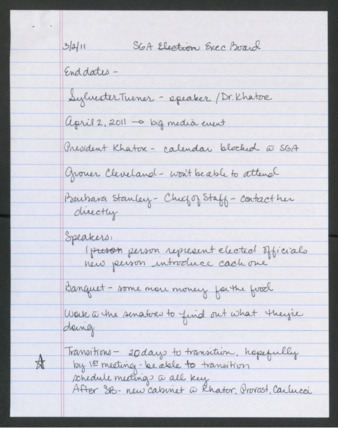 3/2/11 SGA Election Exec Board
End dates -
Sylvester Turner - speaker / Dr. Khator
April 2, 2011 → big media event
President Khator - calendar blocked @ SGA
Grover Cleveland - won't be able to attend
Barbara Stanley - Chief of Staff - contact her
directly
Speakers:
1 person person represent elected officials
new person introduce each one
Banquet - some more money for the food
Work @ the senators to find out what they're
doing
☆ Transitions - 20 days to transition, hopefully
by 1st meeting - be able to transition
schedule meetings @ all key
After SB - new cabinet @ Khator, Provost, Carlucci